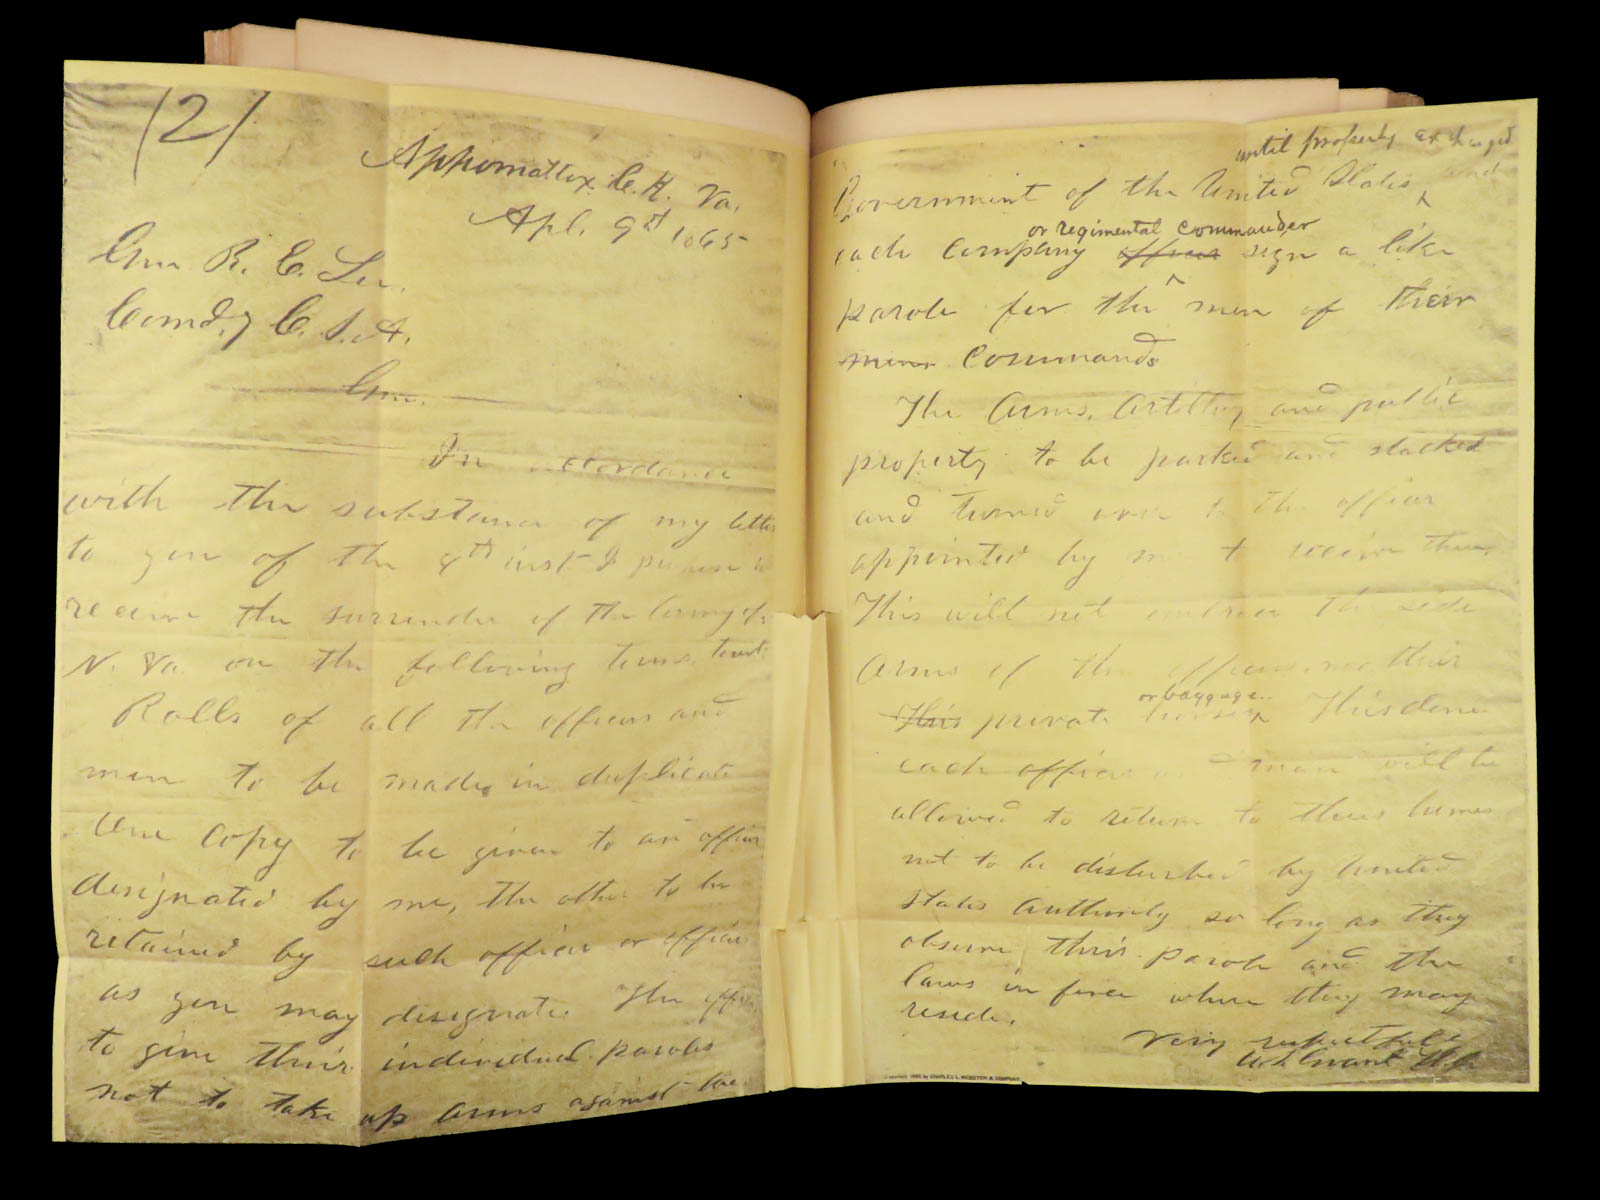 (2)
Appomattox C. H. Va.
Apl. 9th 1865
Gen. R. E. Lee,
Comd.g C. S. A.
Gen.
In accordance
with the substance of my letter
to you of the 8th inst I propose to
receive the surrender of the Army of
N. Va. on the following terms, towit:
Rolls of all the officers and
men to be made in duplicate
One copy to be given to an officer
designated by me, the other to be
retained by such officer or officers
as you may designate. The officers
to give their individual paroles
not to take up arms against the
until properly exchanged
Government of the United States and
or regimental commander
each company officer sign a like
parole for the men of their
commands
The Arms, Artillery and public
property to be parked and stacked
and turned over to the officer
appointed by me to receive them.
This will not embrace the side
Arms of the officers, nor their
or baggage.
This private horses This done
each officer and man will be
allowed to return to their homes
not to be disturbed by United
States Authority so long as they
observe their parole and the
laws in force where they may
reside.
Very respectfully
U. S. Grant Lt. Gn
Copyright 1885 by CHARLES L. WEBSTER & COMPANY.